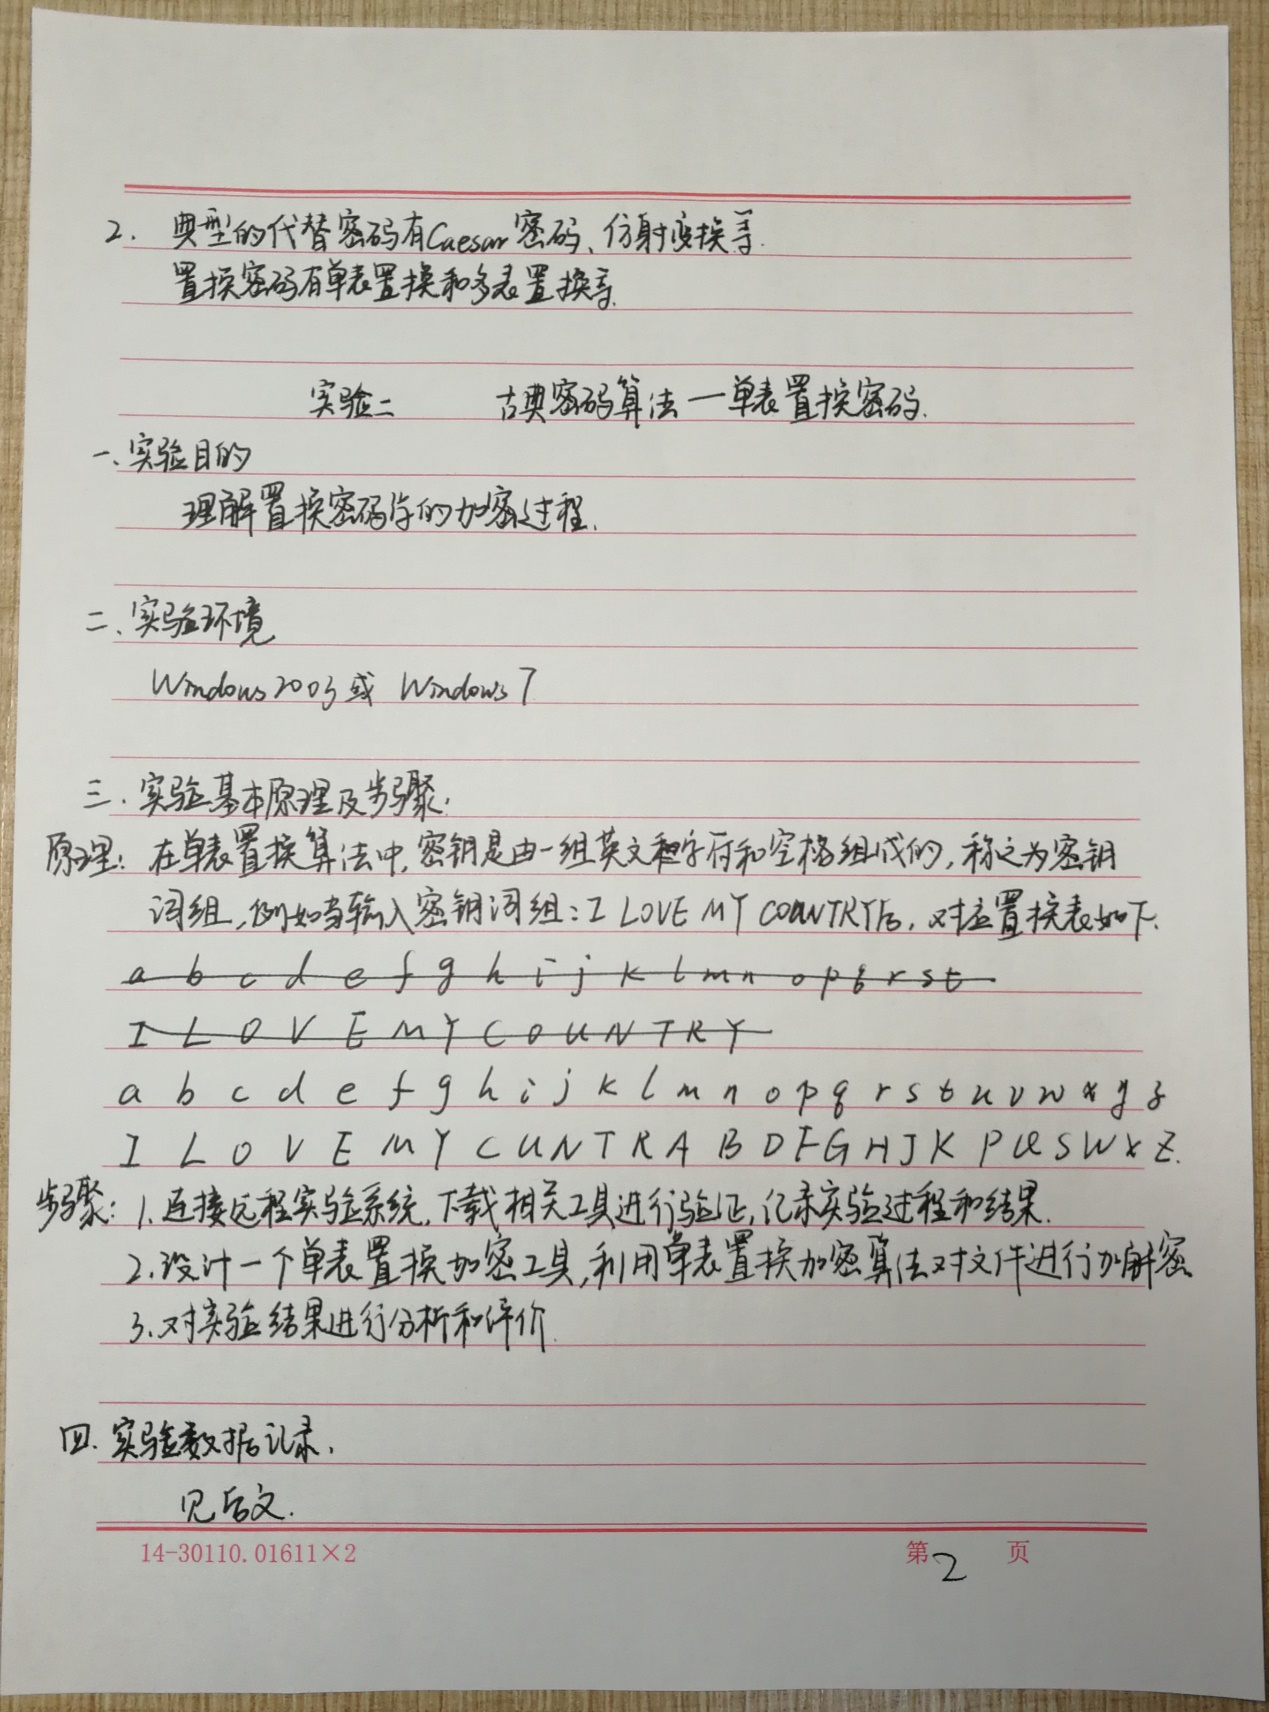 2. 典型的代替密码有Caesar密码、仿射变换等.
置换密码有单表置换和多表置换等.
实验二 古典密码算法一单表置换密码.
一、实验目的
理解置换密码学的加密过程.
二、实验环境
Windows2003或 Windows7
三.实验基本原理及步骤.
原理: 在单表置换算法中,密钥是由一组英文字符和空格组成的,称之为密钥
词组,例如当输入密钥词组: I LOVE MY COUNTRY后,对应置换表如下.
a b c d e f g h i j k l m n o p q r s t
I L O V E M Y C O U N T R Y
a b c d e f g h i j k l m n o p q r s t u v w x y z
I L O V E M Y C U N T R A B D F G H J K P Q S W X Z.
步骤: 1.连接远程实验系统,下载相关工具进行验证,记录实验过程和结果.
2.设计一个单表置换加密工具,利用单表置换加密算法对文件进行加解密
3.对实验结果进行分析和评价.
四.实验数据记录.
见后文.
14-30110.01611×2 第2页